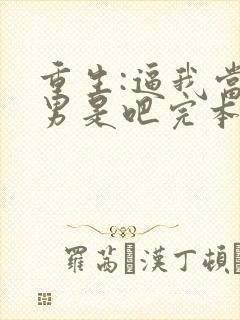 重生:逼我當
男是吧完本
羅茜·漢丁頓·